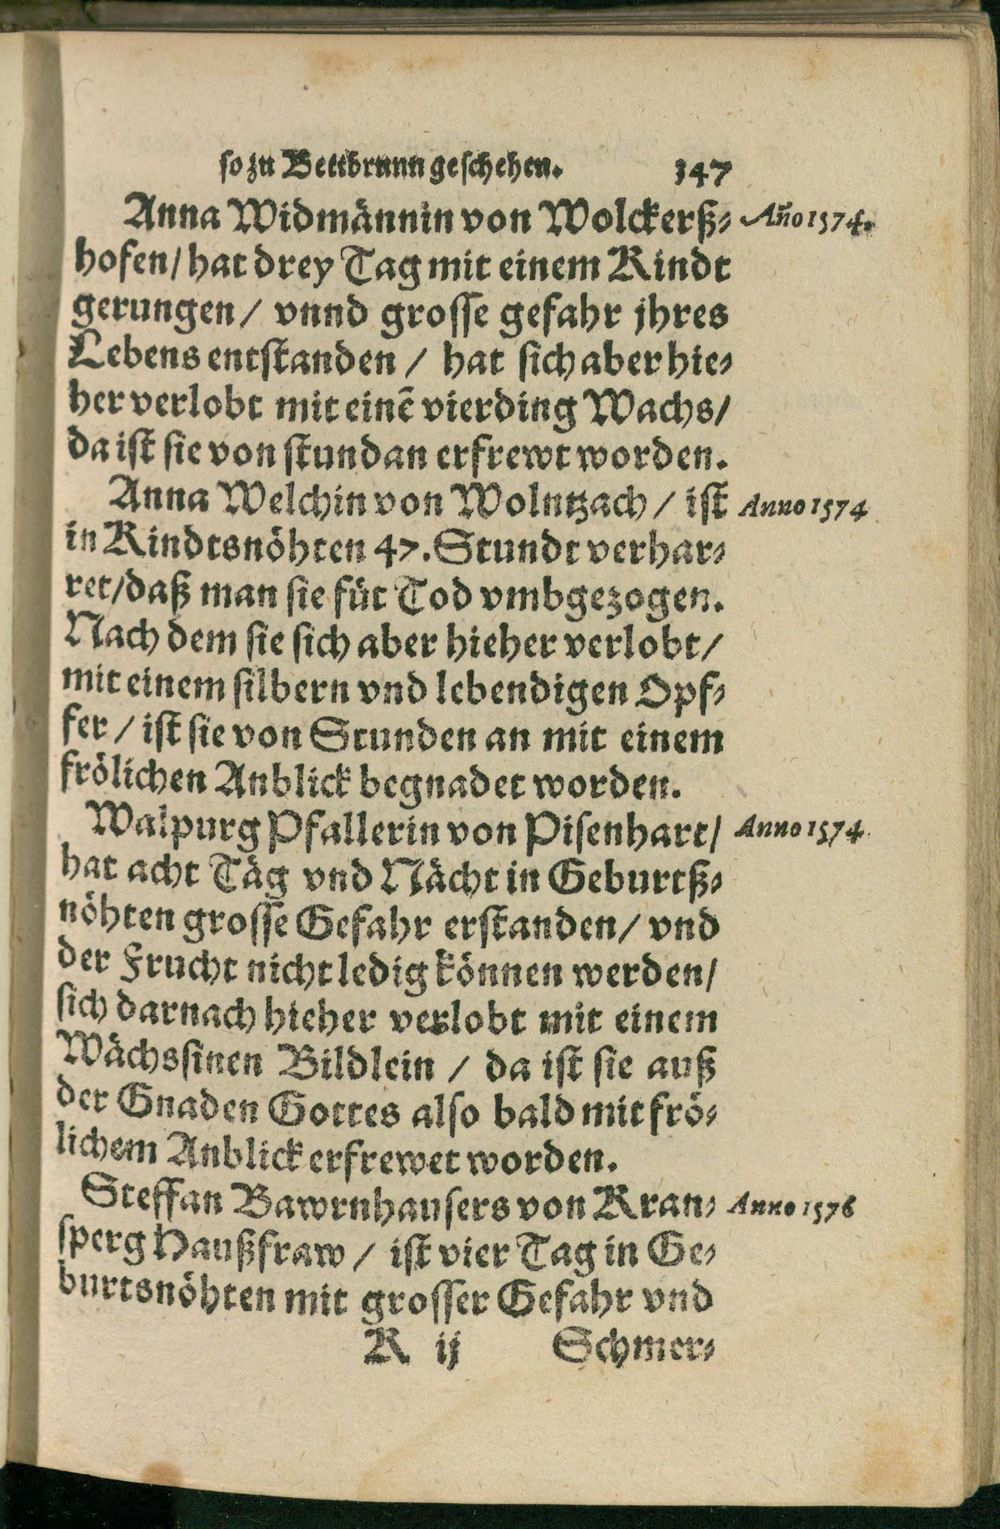 so zu Bettbrunn geschehen. 147
Anna Widmännin von Wolckerß⸗ Año 1574.
hofen / hat drey Tag mit einem Kindt
gerungen / vnnd grosse gefahr jhres
Lebens entstanden / hat sich aber hie⸗
her verlobt mit einē vierding Wachs /
da ist sie von stund an erfrewt worden.
Anna Welchin von Wolntzach / ist Anno 1574
in Kindtsnöhten 47. Stundt verhar⸗
ret / daß man sie für Tod vmbgezogen.
Nach dem sie sich aber hieher verlobt /
mit einem silbern vnd lebendigen Opf⸗
fer / ist sie von Stunden an mit einem
frölichen Anblick begnadet worden.
Walpurg Pfallerin von Pisenhart / Anno 1574
hat acht Täg vnd Nächt in Geburtß⸗
nöhten grosse Gefahr erstanden / vnd
der Frucht nicht ledig können werden /
sich darnach hieher verlobt mit einem
Wächssinen Bildlein / da ist sie auß
der Gnaden Gottes also bald mit frö⸗
lichem Anblick erfrewet worden.
Steffan Bawrnhausers von Kran⸗ Anno 1576
sperg Haußfraw / ist vier Tag in Ge⸗
burtsnöhten mit grosser Gefahr vnd
K ij Schmer⸗